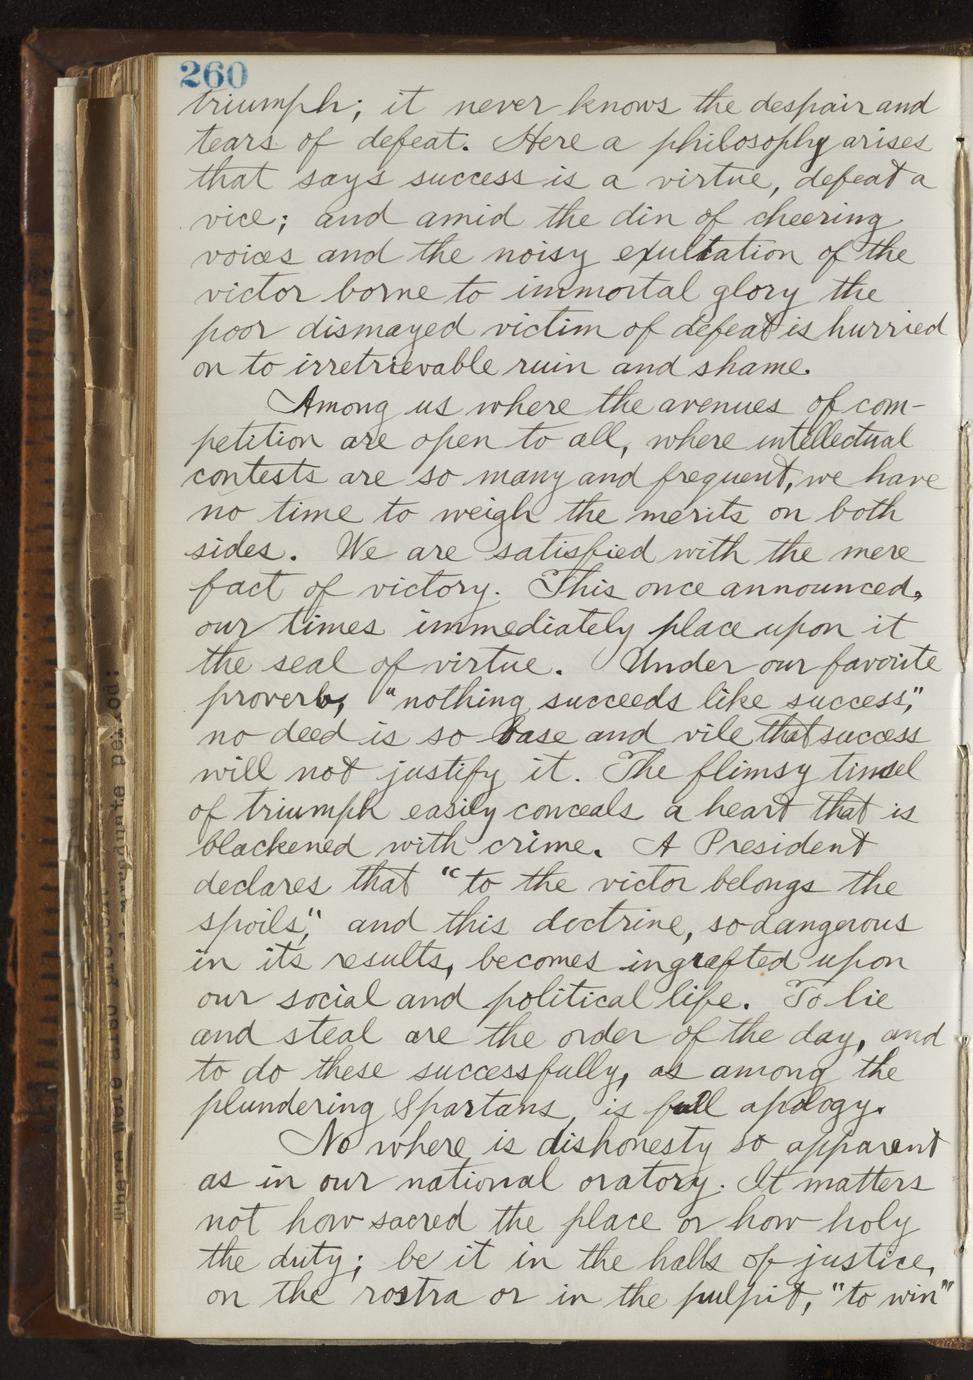 260
triumph; it never knows the despair and
tears of defeat. Here a philosophy arises
that says success is a virtue, defeat a
vice; and amid the din of cheering
voices and the noisy exultation of the
victor borne to immortal glory the
poor dismayed victim of defeat is hurried
on to irretrievable ruin and shame.
Among us where the avenues of com-
petition are open to all, where intellectual
contests are so many and frequent, we have
no time to weigh the merits on both
sides. We are satisfied with the mere
fact of victory. This once announced,
our times immediately place upon it
the seal of virtue. Under our favorite
proverb, "nothing succeeds like success,"
no deed is so base and vile that success
will not justify it. The flimsy tinsel
of triumph easily conceals a heart that is
blackened with crime. A President
declares that "to the victor belongs the
spoils", and this doctrine, so dangerous
in its results, becomes ingrafted upon
our social and political life. To lie
and steal are the order of the day, and
to do these successfully, as among the
plundering Spartans, is full apology.
No where is dishonesty so apparent
as in our national oratory. It matters
not how sacred the place or how holy
the duty; be it in the halls of justice,
on the rostra or in the pulpit, "to win"
There were also
period: